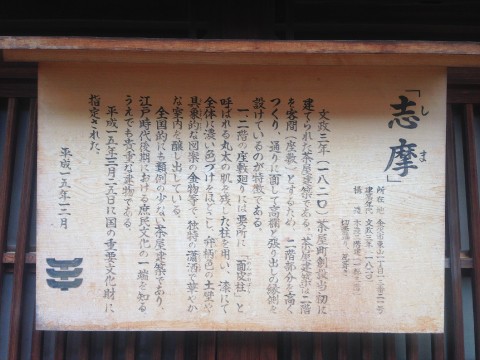 「志摩」
しま
所在地 金沢市東山一丁目一三番二一号
建築年代 文政三年(一八二〇)
構造 木造二階建
切妻造り
文政三年(一八二〇)茶屋町創設当初に
建てられた茶屋建築である。茶屋建築は二階
を客間(座敷)とするため、二階部分を高く
つくり、通りに面して高欄と張り出しの縁側を
設けているのが特徴である。
一・二階の座敷廻りには要所に、「面皮柱」と
呼ばれる丸太の肌を残した柱を用い、漆にて
全体に濃い色づけをほどこし、弁柄色の土壁や
具象的な図案の金物等で、独特の瀟洒で華やか
な室内を醸し出している。
全国的にも類例の少ない茶屋建築であり、
江戸時代後期における庶民文化の一端を知る
うえでも貴重な建物である。
平成一五年一二月二五日に国の重要文化財に
指定された。
平成一五年一二月